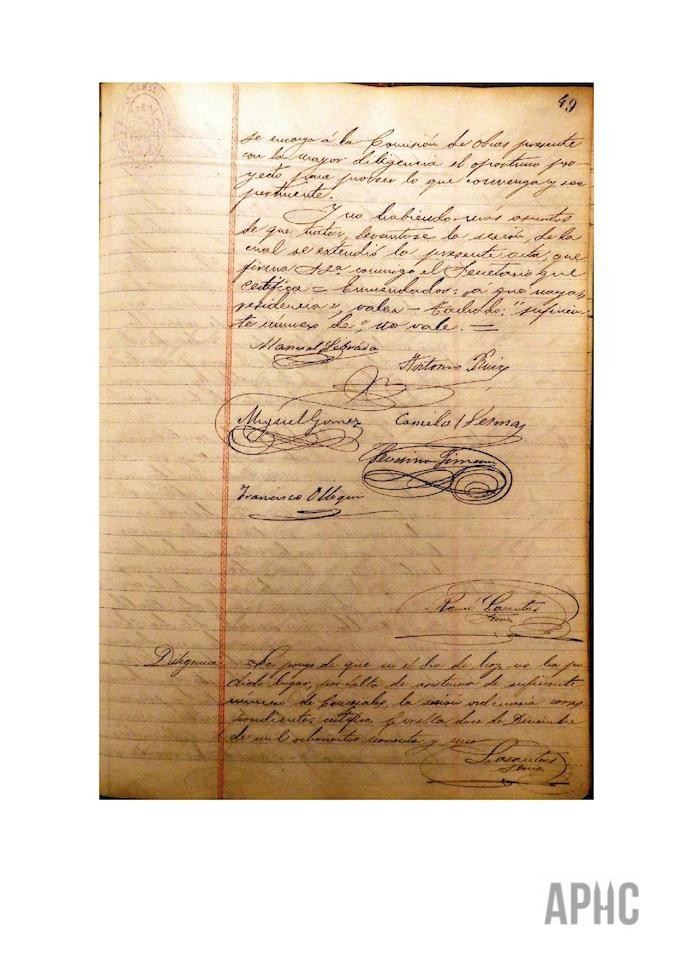 49
se encarga á la Comisión de Obras presente
con la mayor diligencia el oportuno pro-
yecto para proveer lo que convenga y sea
pertinente.
Y no habiendo más asuntos
de que tratar, levantose la sesión, de la
cual se extendió la presente acta, que
firma S.Sa. conmigo el Secretario que
certifica = Enmendados: a que
residencia", valen - Tachado: "suficien-
te número de", no vale. =
Manuel
Antonio Ruiz
Miguel Gomez Camilo Lesma
Francisco
Ramón Lasantas
Srio
Diligencia = La pongo de que en el dia de hoy, no ha po-
dido lugar, por falta de asistencia de suficiente
número de Concejales, la sesión ordinaria corres-
pondiente; certifico. doce de Diciembre
de mil ochocientos noventa y uno
Lasantas
Srio
APHC